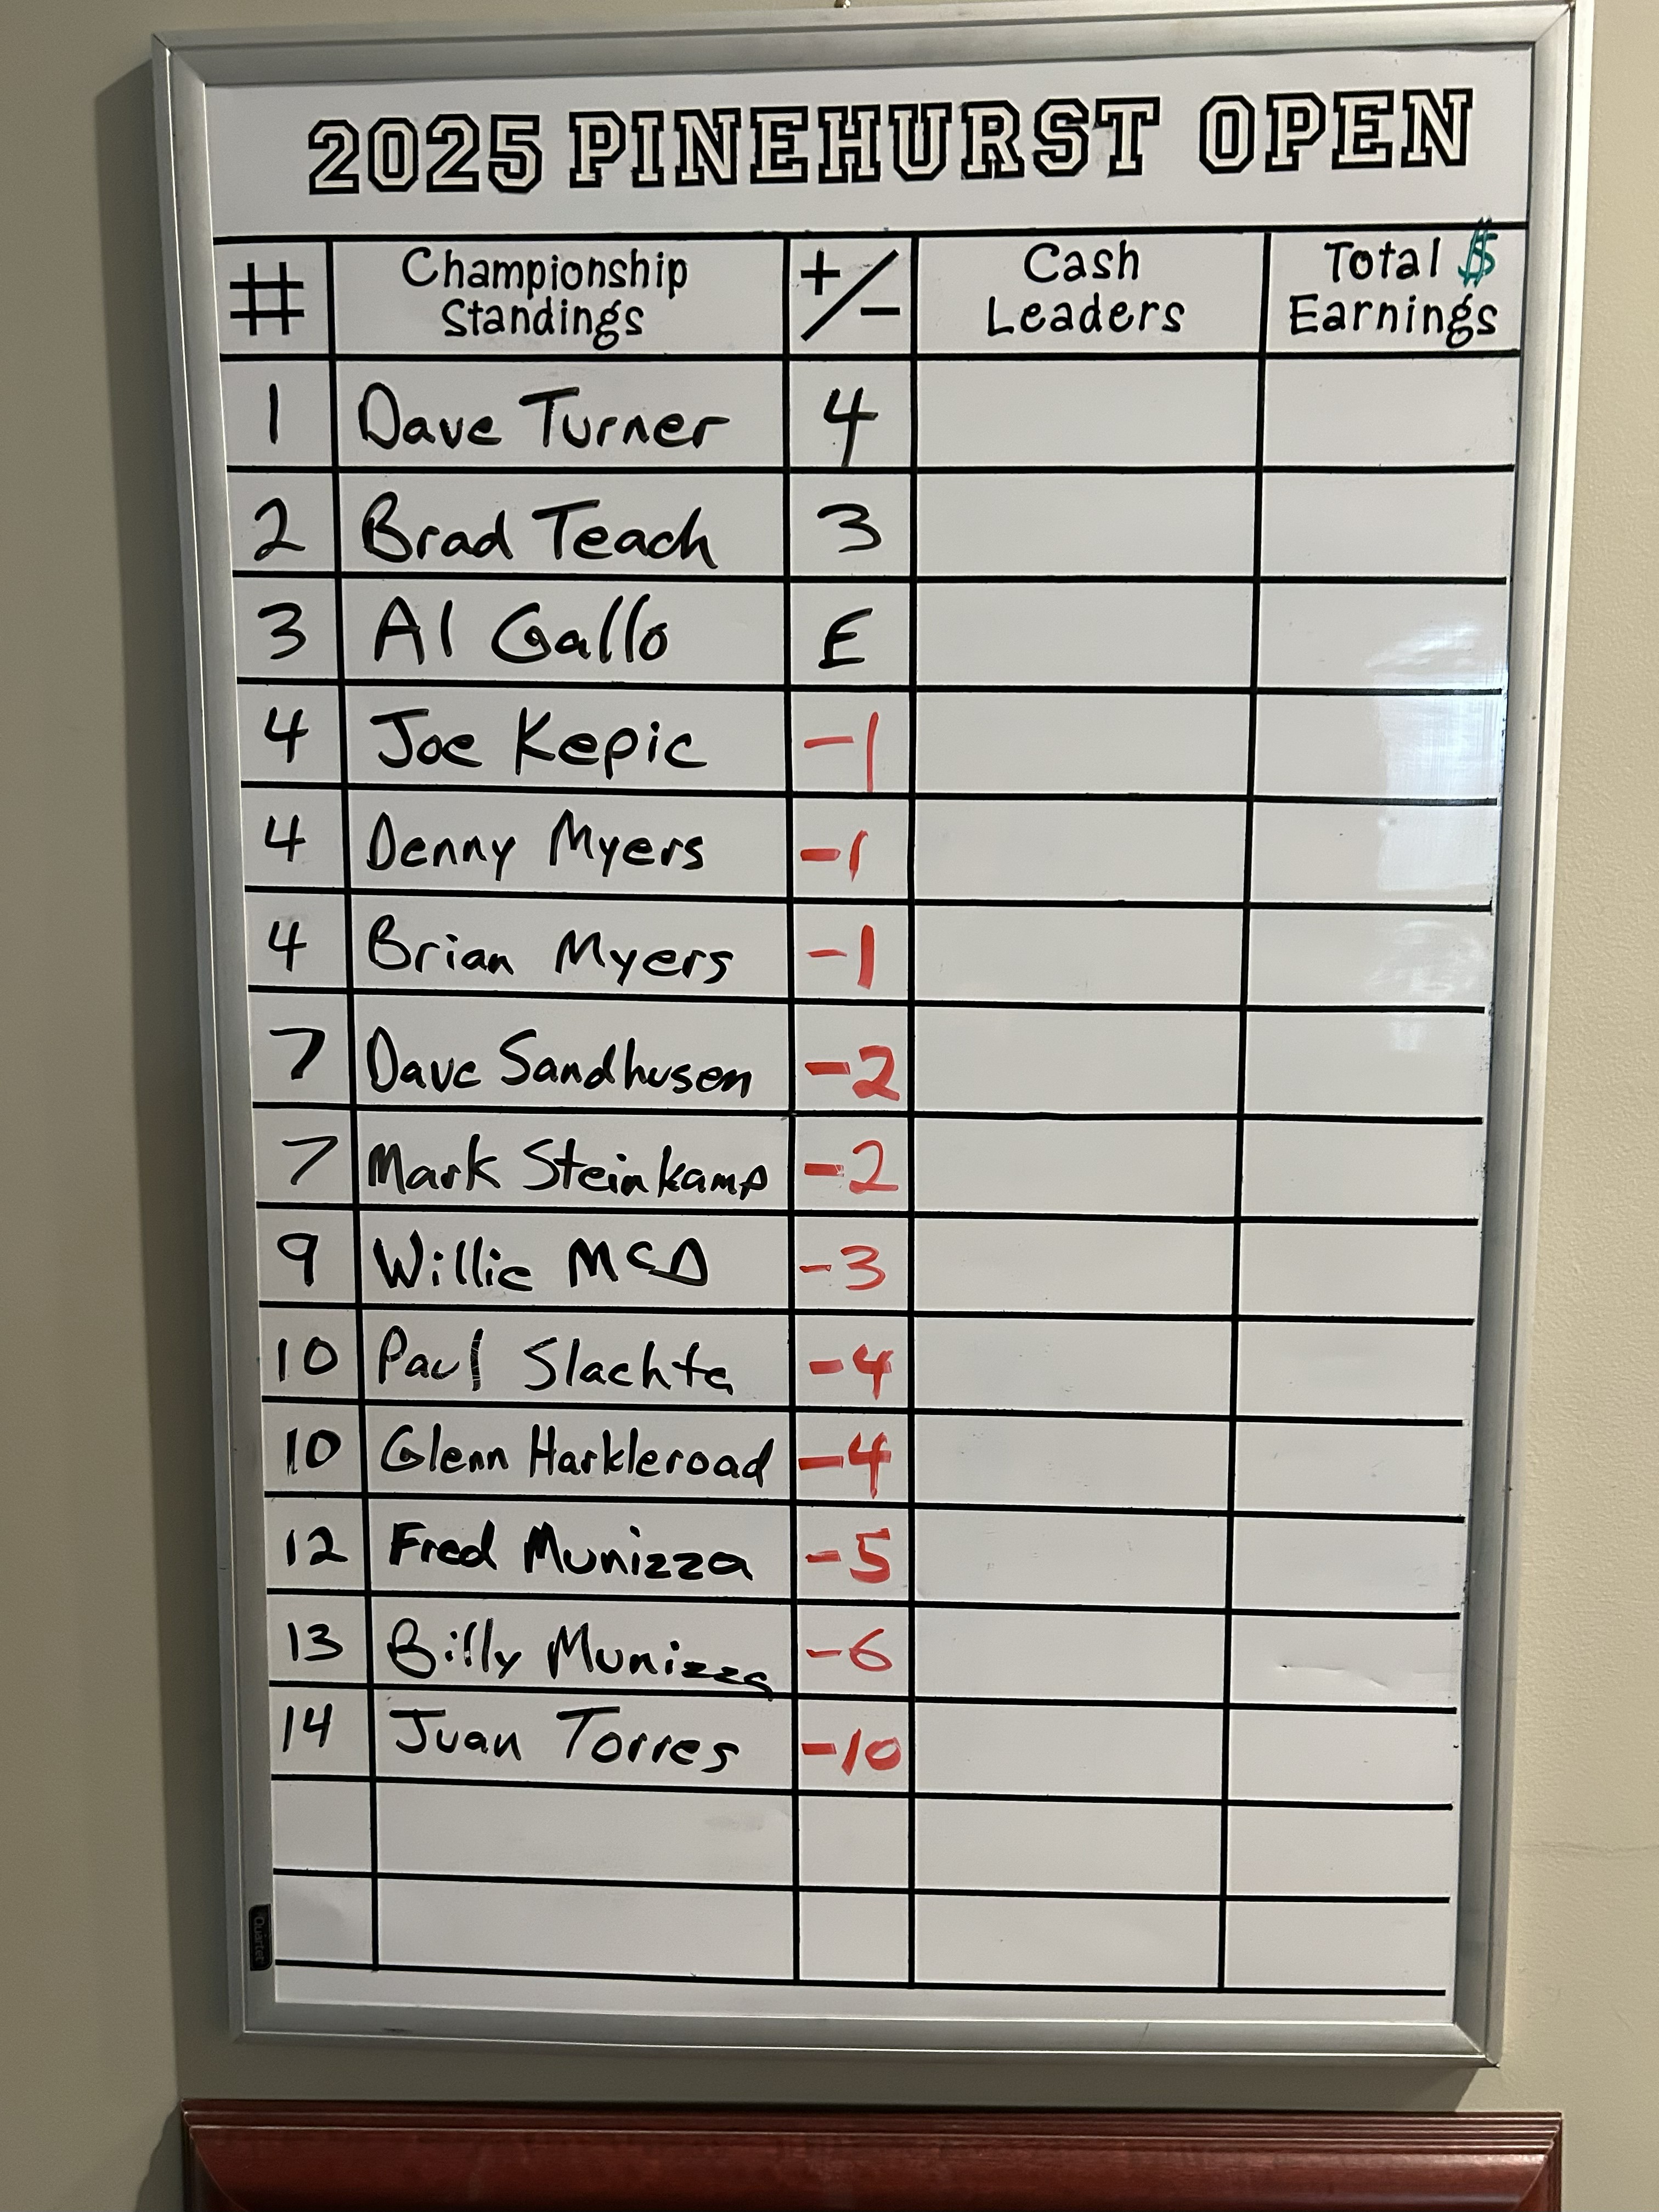 2025 PINEHURST OPEN
# Championship Standings +/- Cash Leaders Total $ Earnings
1 Dave Turner 4
2 Brad Teach 3
3 Al Gallo E
4 Joe Kepic -1
4 Denny Myers -1
4 Brian Myers -1
7 Dave Sandhusen -2
7 Mark Steinkamp -2
9 Willie McD -3
10 Paul Slachta -4
10 Glenn Harkleroad -4
12 Fred Munizza -5
13 Billy Munizza -6
14 Juan Torres -10
Quartet